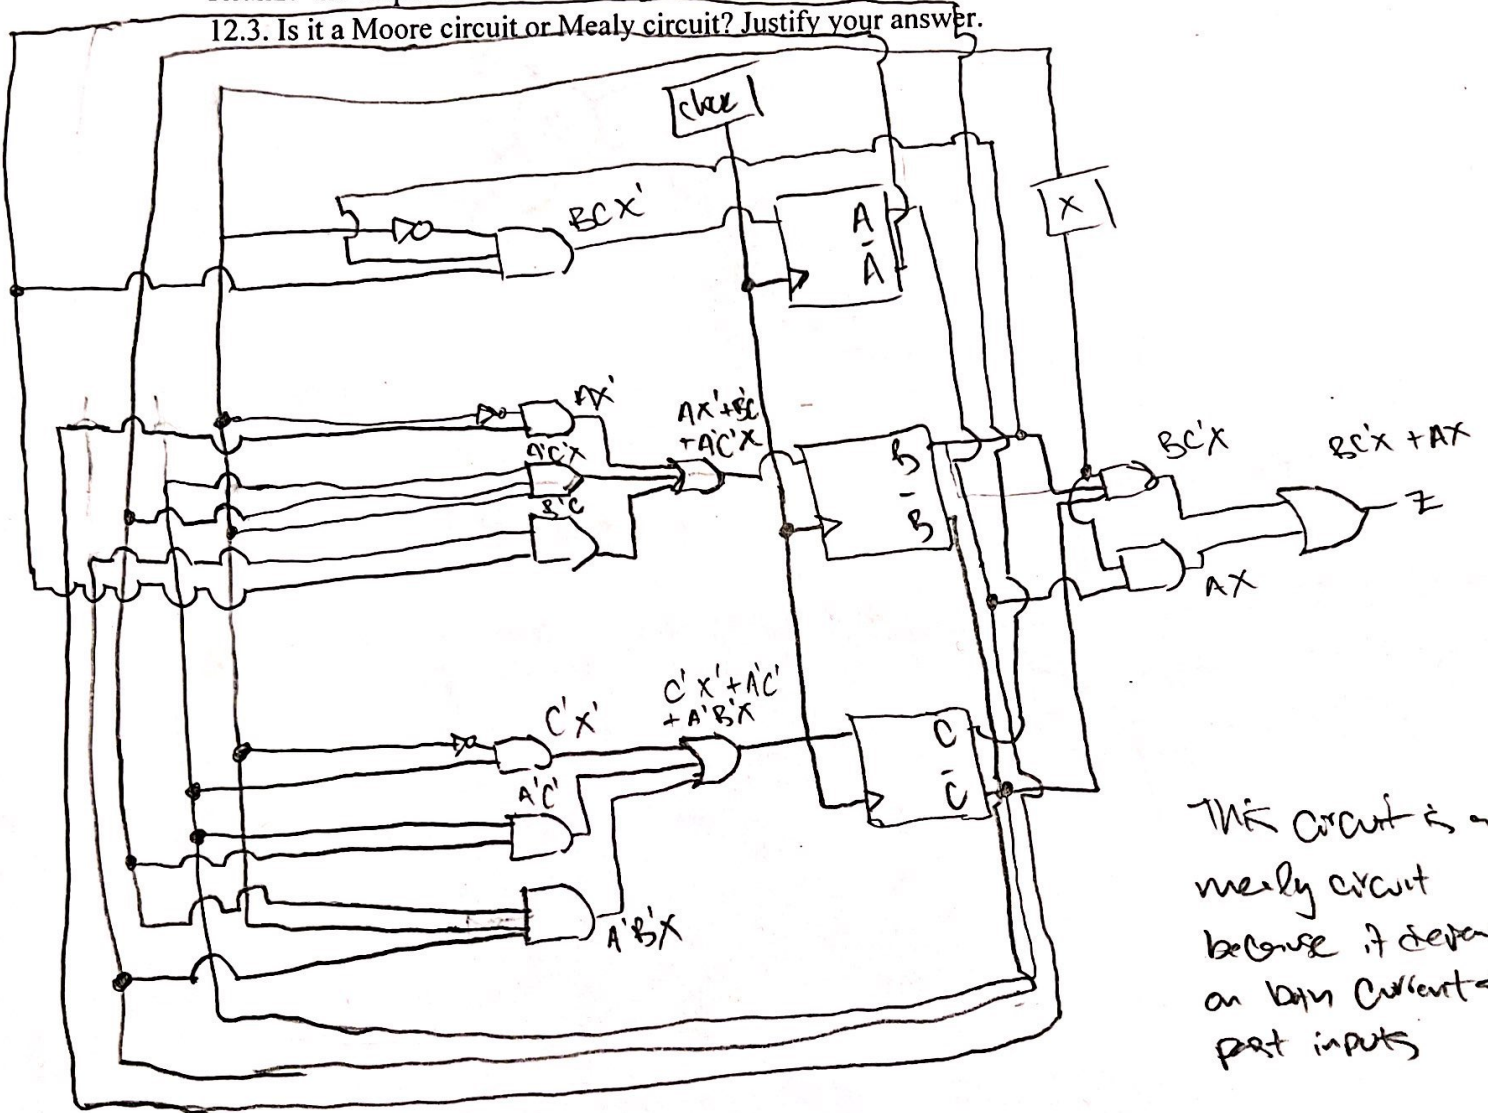 12.3. Is it a Moore circuit or Mealy circuit? Justify your answer.
clock
BCX'
A
Ā
X
AX'
AX'+B'C
+A'C'X
A'C'X
B'C
B
B̄
BC'X
BC'X + AX
Z
AX
C'X'
C'X'+A'C'
+A'B'X
A'C'
C
C̄
A'B'X
This circuit is a
mealy circuit
because it
on both current
past inputs